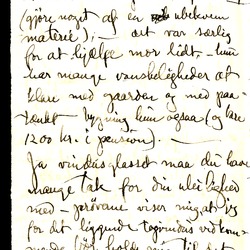 (gjöre noget af en ubekvem
materie); — det var særlig
for at hjælpe mor lidt — hun
har mange vanskeligheder at
klare med gaarden og med pan-
tænkt bygning hun ogsaa (og bare
1200 kr. i pension). —
Ja vindusglasset maa du have
mange tak for din ulei
med — prøvene viser mig at jeg
for det liggende tagvindus vedkom-
mende bör holde mig til